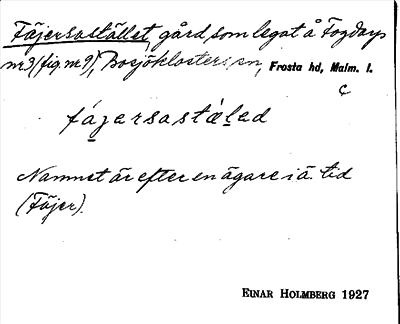 Fäjersastället, gård, som legat å Fogdarp
nr 3 (fig. nr 9), Bosjöklosters sn, Frosta hd, Malm. l.
C
fájersastäled
Namnet är efter en ägare i ä. tid
(Fäjer).
EINAR HOLMBERG 1927